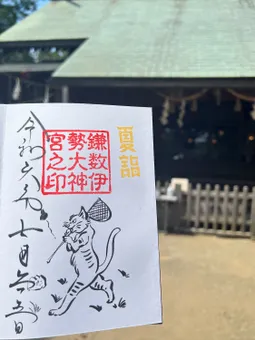 夏詣
鎌数伊
勢大神
宮之印
令和六年七月二十五日